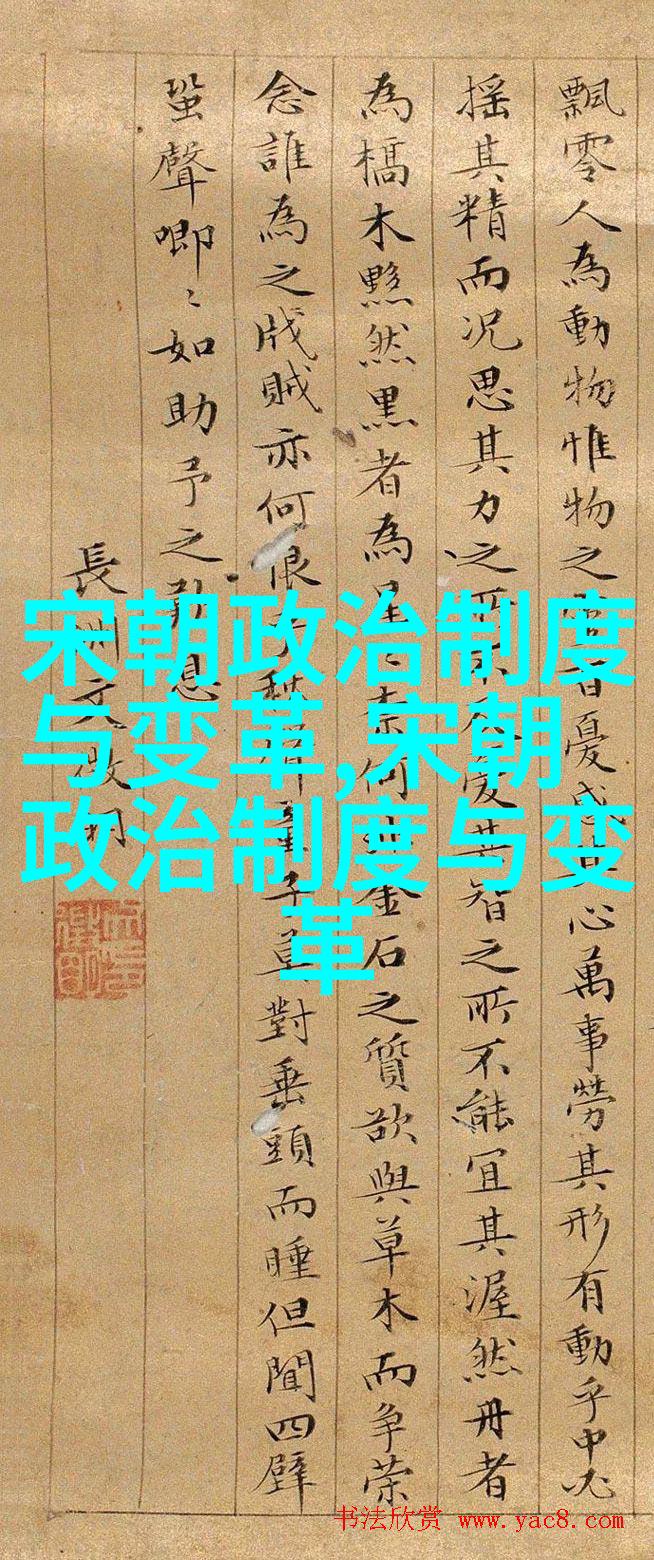 飄零人為動物惟物之百憂感其心萬事勞其形有動乎中必
搖其精而况思其力之所憂其智之所不能宜其渥然丹者
為槁木黟然黑者為星奈何金石之質欲與草木而争榮
念誰為之戕賊亦何恨乎童子莫對垂頭而睡但聞四壁
蛩聲唧〻如助予之歎息
長洲文
宋朝政治制度
与变革,宋朝
政治制度与变
革
书法欣赏 www.yac8.com